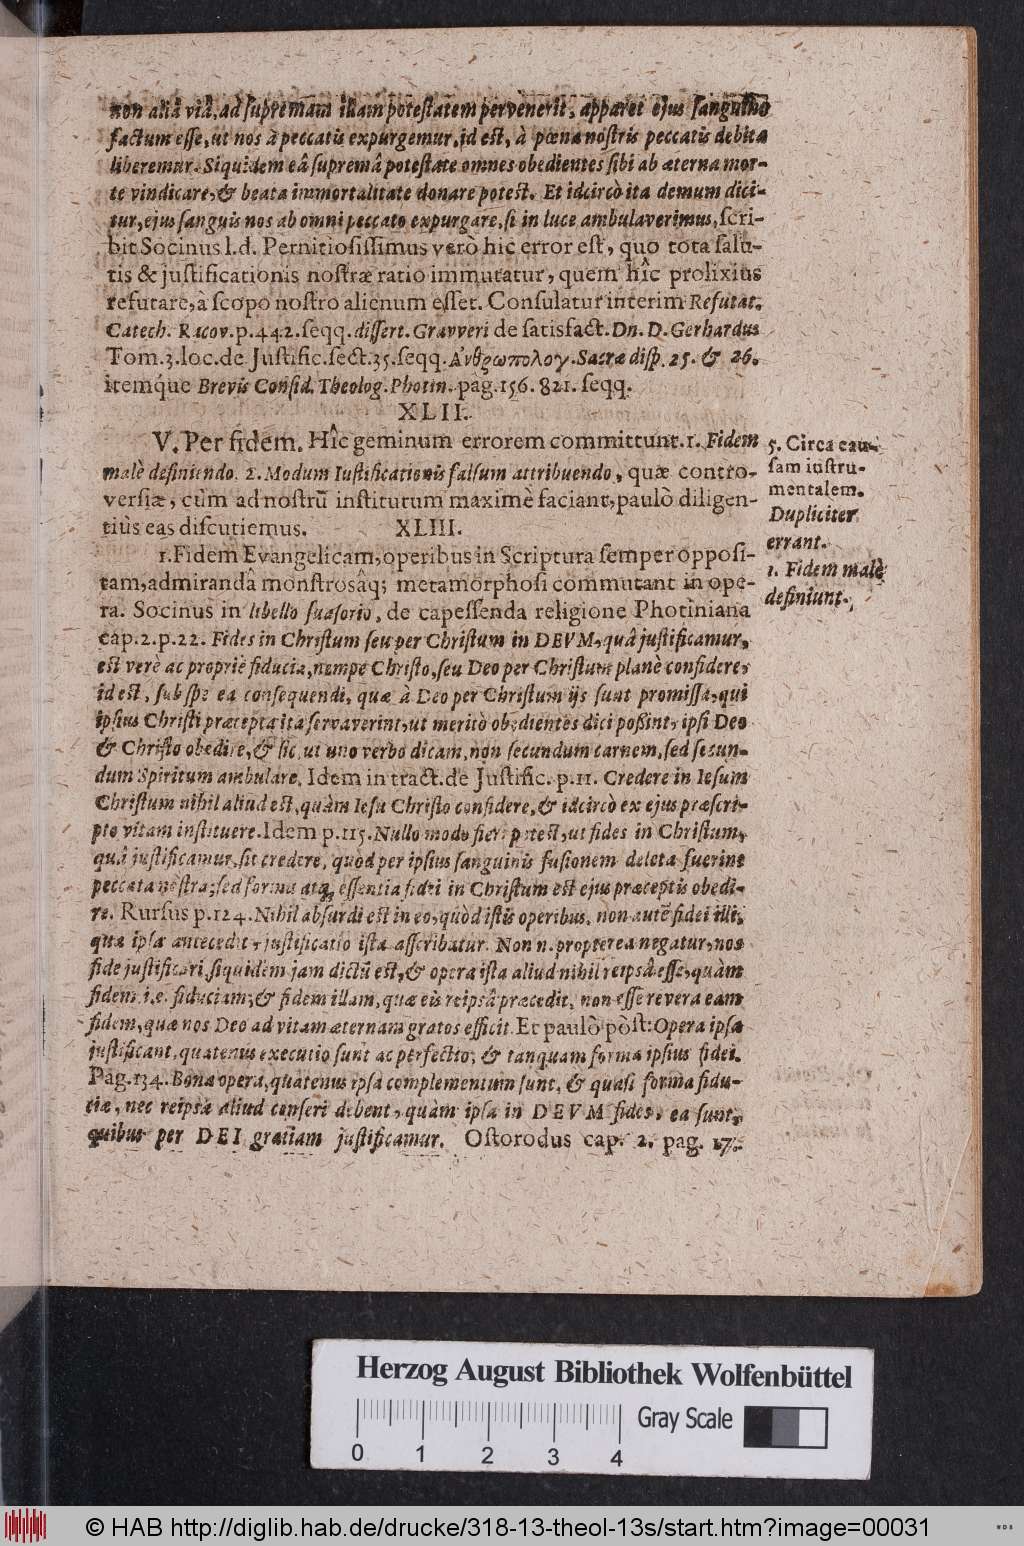 non aliâ viâ, ad supremam illam potestatem pervenerit, apparet ejus sanguine
factum esse, ut nos à peccatis expurgemur, id est, à pœna nostris peccatis debita
liberemur. Siquidem eâ supremâ potestate omnes obedientes sibi ab æterna mor-
te vindicare, & beata immortalitate donare potest. Et idcircò ita demum dici-
tur, ejus sanguis nos ab omni peccato expurgare, si in luce ambulaverimus, scri-
bit Socinus l.d. Pernitiosissimus verò hic error est, quo tota salu-
tis & justificationis nostræ ratio immutatur, quem hîc prolixius
refutare, à scopo nostro alienum esset. Consulatur interim Refutat.
Catech. Racov. p. 442. seqq. dissert. Gravveri de satisfact. Dn. D. Gerhardus
Tom. 3. loc. de Justific. sect. 35. seqq. Ανθρωπολογ. Sacræ disp. 25. & 26.
itemque Brevis Consid. Theolog. Photin. pag. 156. 821. seqq.
XLII.
V. Per fidem. Hîc geminum errorem committunt. 1. Fidem
malè definiendo. 2. Modum Iustificationis falsum attribuendo, quæ contro-
versiæ, cùm ad nostrũ institutum maximè faciant, paulò diligen-
tiùs eas discutiemus. XLIII.
1. Fidem Evangelicam, operibus in Scriptura semper opposi-
tam, admirandâ monstrosâq; metamorphosi commutant in ope-
ra. Socinus in libello suasorio, de capessenda religione Photiniana
cap. 2. p. 22. Fides in Christum seu per Christum in DEVM, quâ justificamur,
est verè ac propriè fiducia, nempe Christo, seu Deo per Christum planè confidere,
id est, sub spe ea consequendi, quæ à Deo per Christum ijs sunt promissa, qui
ipsius Christi præcepta ita servaverint, ut meritò obedientes dici possint, ipsi Deo
& Christo obedire, & sic, ut uno verbo dicam, non secundum carnem, sed secun-
dum Spiritum ambulare. Idem in tract. de Justific. p. 11. Credere in Iesum
Christum nihil aliud est, quàm Iesu Christo confidere, & idcircò ex ejus præscri-
pto vitam instituere. Idem p. 115. Nullo modo fieri potest, ut fides in Christum,
quâ justificamur, sit credere, quòd per ipsius sanguinis fusionem deleta fuerint
peccata nostra; sed forma atq; essentia fidei in Christum est ejus præceptis obedi-
re. Rursus p. 124. Nihil absurdi est in eo, quòd istis operibus, non autẽ fidei illi,
quæ ipsa antecedit, justificatio ista asscribatur. Non n. propterea negatur, nos
fide justificari, siquidem jam dictũ est, & opera ista aliud nihil reipsâ esse, quàm
fidem, i.e. fiduciam; & fidem illam, quæ eis reipsâ præcedit, non esse revera eam
fidem, quæ nos Deo ad vitam æternam gratos efficit. Et paulò pòst: Opera ipsa
justificant, quatenus executio sunt ac perfectio, & tanquam forma ipsius fidei.
Pag. 134. Bona opera, quatenus ipsa complementum sunt, & quasi forma fidu-
ciæ, nec reipsa aliud censeri debent, quàm ipsa in DEVM fides, ea sunt,
quibus per DEI gratiam justificamur. Ostorodus cap. 2. pag. 17.
5. Circa cau-
sam iustru-
mentalem.
Dupliciter
errant.
1. Fidem malè
definiunt.
Herzog August Bibliothek Wolfenbüttel
0 1 2 3 4
Gray Scale
© HAB http://diglib.hab.de/drucke/318-13-theol-13s/start.htm?image=00031